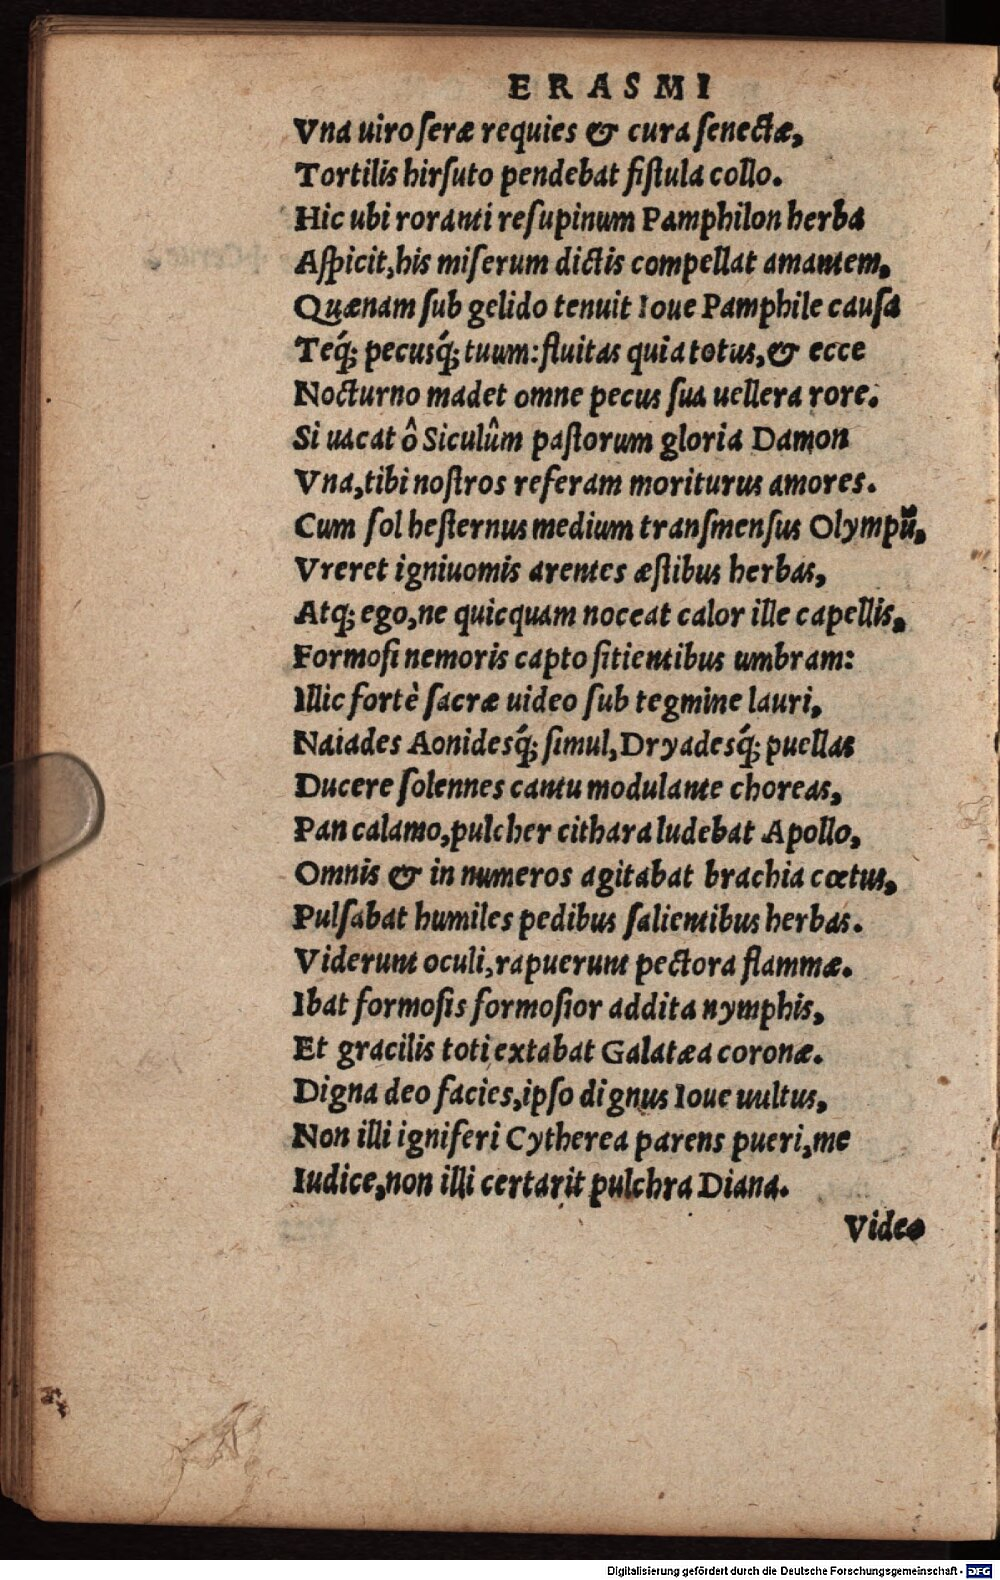 ERASMI
Vna uiro ſeræ requies & cura ſenectæ,
Tortilis hirſuto pendebat fiſtula collo.
Hic ubi roranti reſupinum Pamphilon herba
Aſpicit, his miſerum dictis compellat amantem,
Quænam ſub gelido tenuit Ioue Pamphile cauſa
Teq́; pecusq́; tuum: fluitas quia totus, & ecce
Nocturno madet omne pecus ſua uellera rore.
Si uacat ô Siculûm paſtorum gloria Damon
Vna, tibi noſtros referam moriturus amores.
Cum ſol heſternus medium tranſmenſus Olympū,
Vreret igniuomis arentes æſtibus herbas,
Atq; ego, ne quicquam noceat calor ille capellis,
Formoſi nemoris capto ſitientibus umbram:
Illic fortè ſacræ uideo ſub tegmine lauri,
Naiades Aonidesq́; ſimul, Dryadesq́; puellas
Ducere ſolennes cantu modulante choreas,
Pan calamo, pulcher cithara ludebat Apollo,
Omnis & in numeros agitabat brachia cœtus,
Pulſabat humiles pedibus ſalientibus herbas.
Viderunt oculi, rapuerunt pectora flammæ.
Ibat formoſis formoſior addita nymphis,
Et gracilis toti extabat Galatæa coronæ.
Digna deo facies, ipſo dignus Ioue uultus,
Non illi igniferi Cytherea parens pueri, me
Iudice, non illi certarit pulchra Diana.
Video
Digitalisierung gefördert durch die Deutsche Forschungsgemeinschaft - DFG